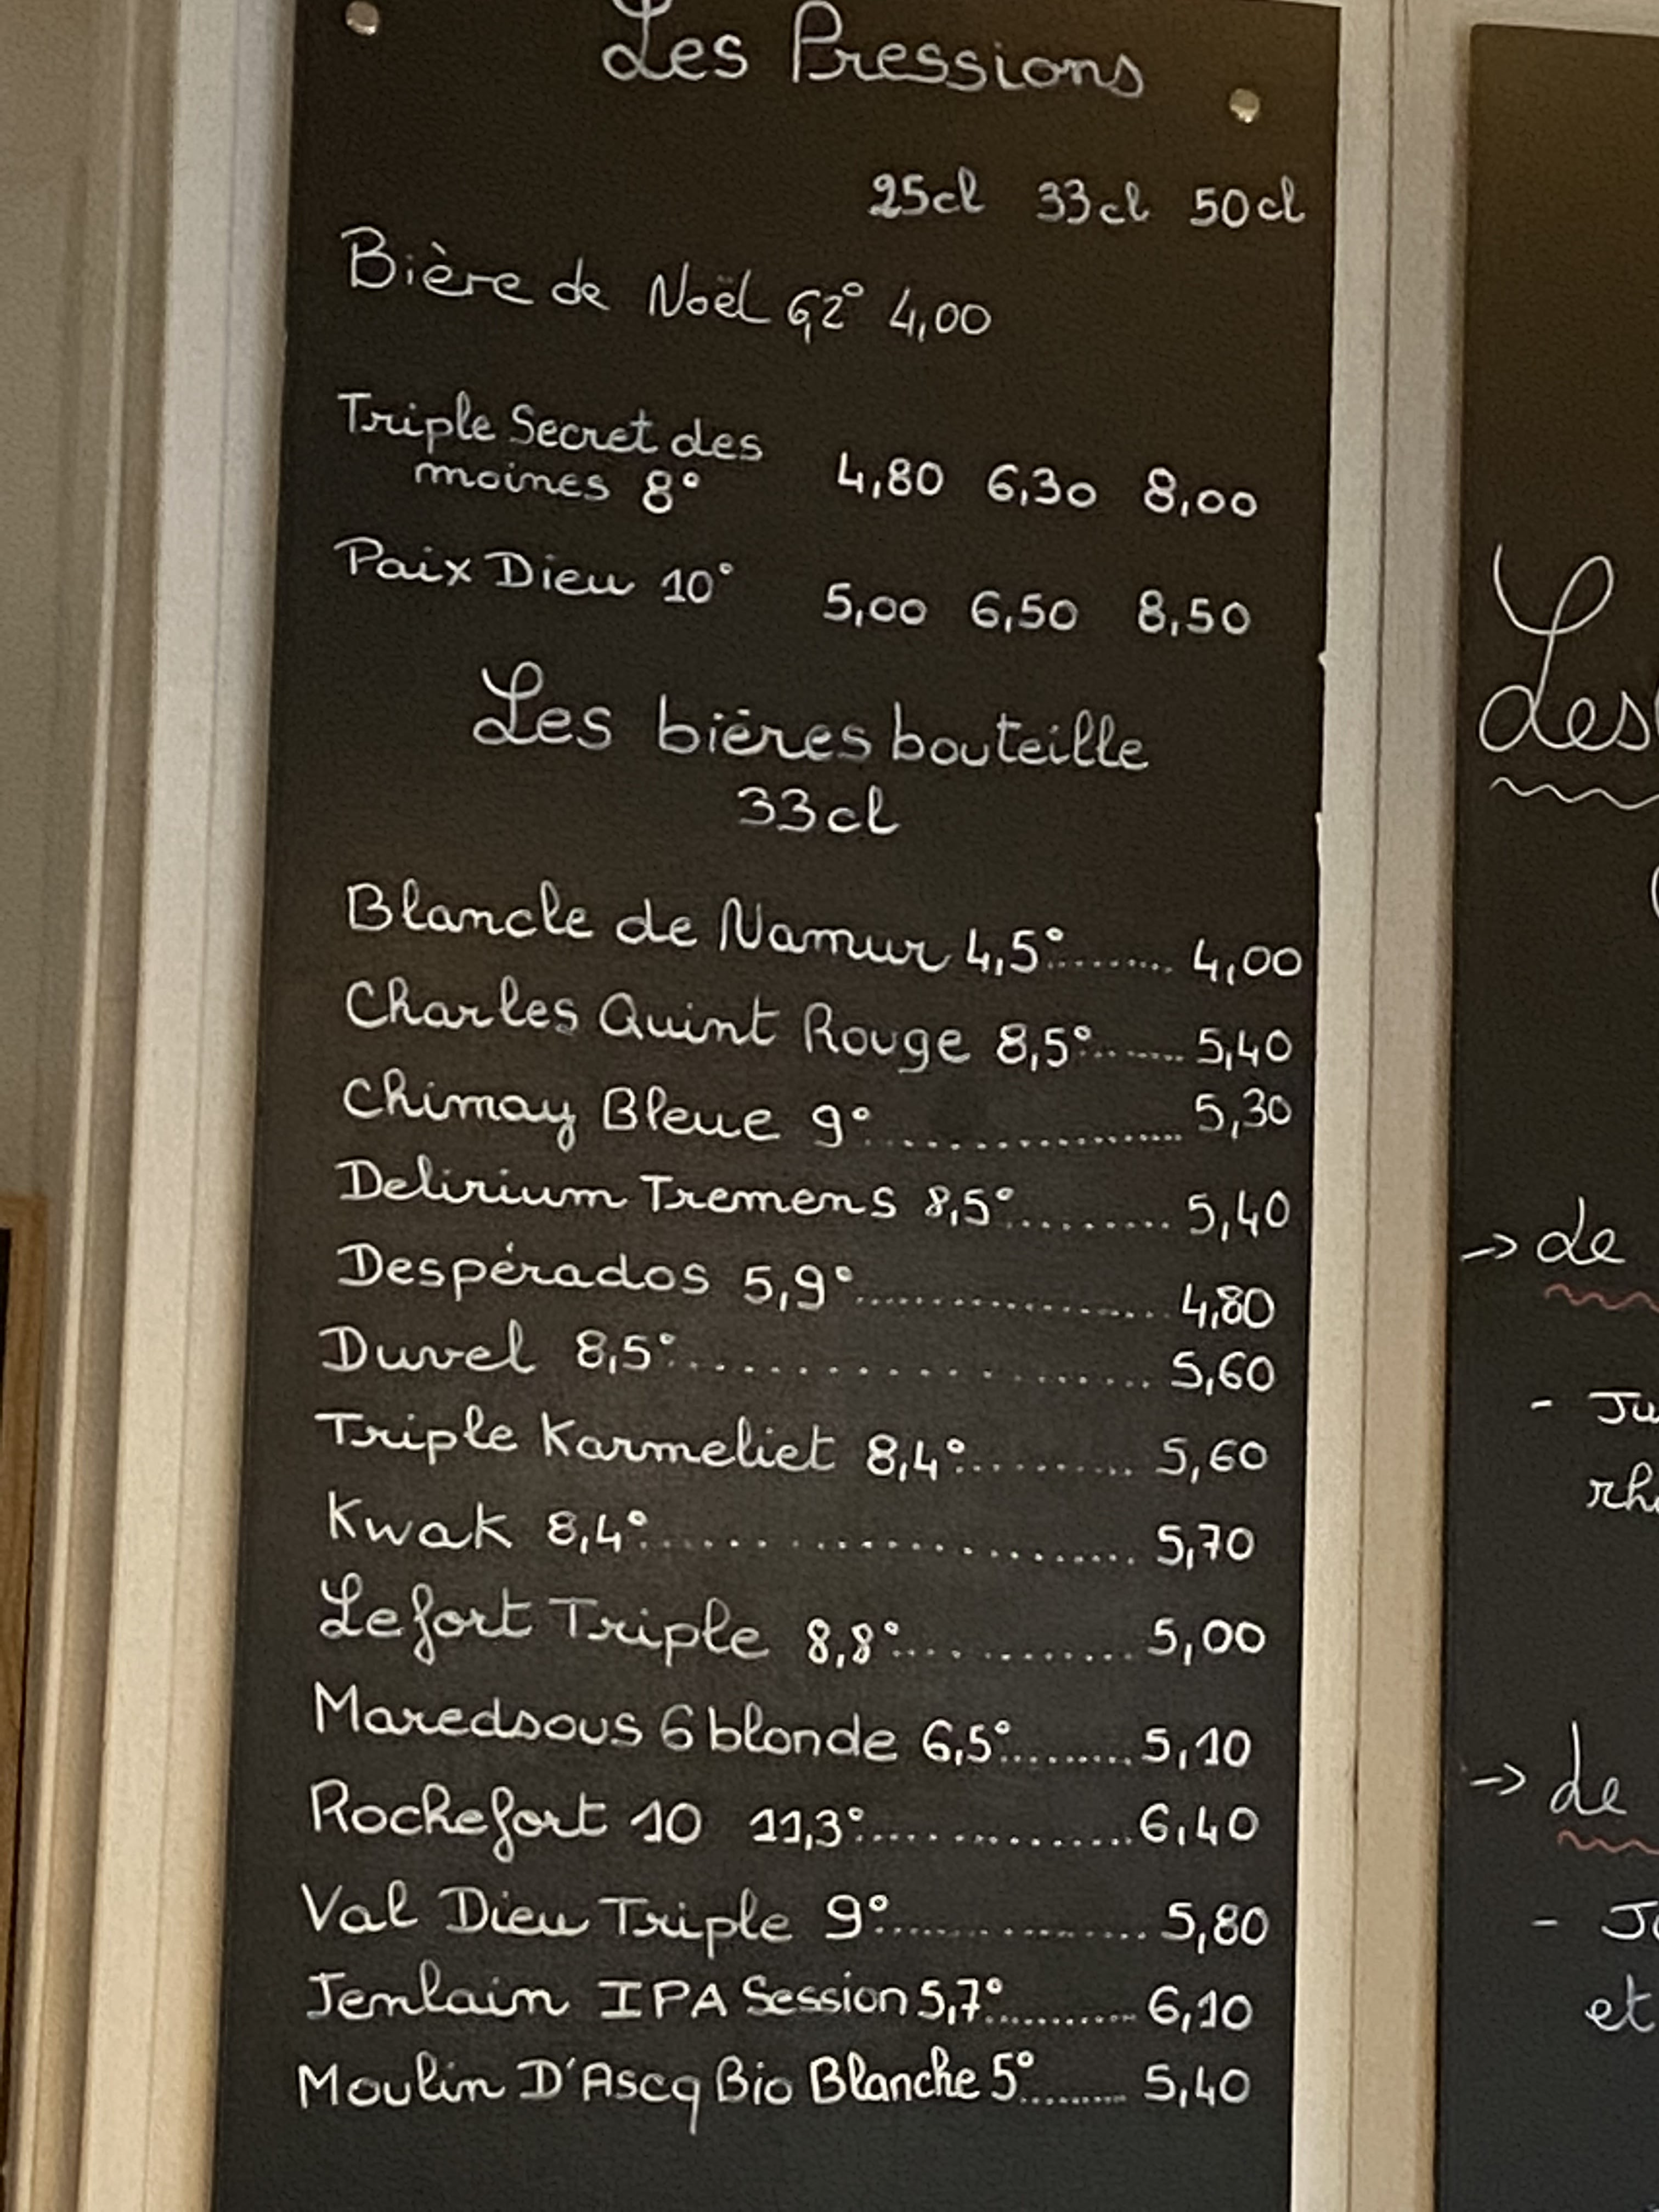 Les Pressions
25cl 33cl 50cl
Bière de Noël 6,2° 4,00
Triple Secret des
moines 8° 4,80 6,30 8,00
Paix Dieu 10° 5,00 6,50 8,50
Les bières bouteille
33cl
Blancle de Namur 4,5°........ 4,00
Charles Quint Rouge 8,5°....... 5,40
Chimay Bleue 9°................. 5,30
Delirium Tremens 8,5°......... 5,40
Despérados 5,9°................. 4,80
Duvel 8,5°................. 5,60
Triple Karmeliet 8,4°.......... 5,60
Kwak 8,4°................. 5,70
Lefort Triple 8,8°............ 5,00
Maredsous 6 blonde 6,5°......... 5,10
Rochefort 10 11,3°............... 6,40
Val Dieu Triple 9°............... 5,80
Jenlain IPA Session 5,7°.......... 6,10
Moulin D'Ascq Bio Blanche 5°........ 5,40
Les
→ de
- Ju
rh
→ de
et